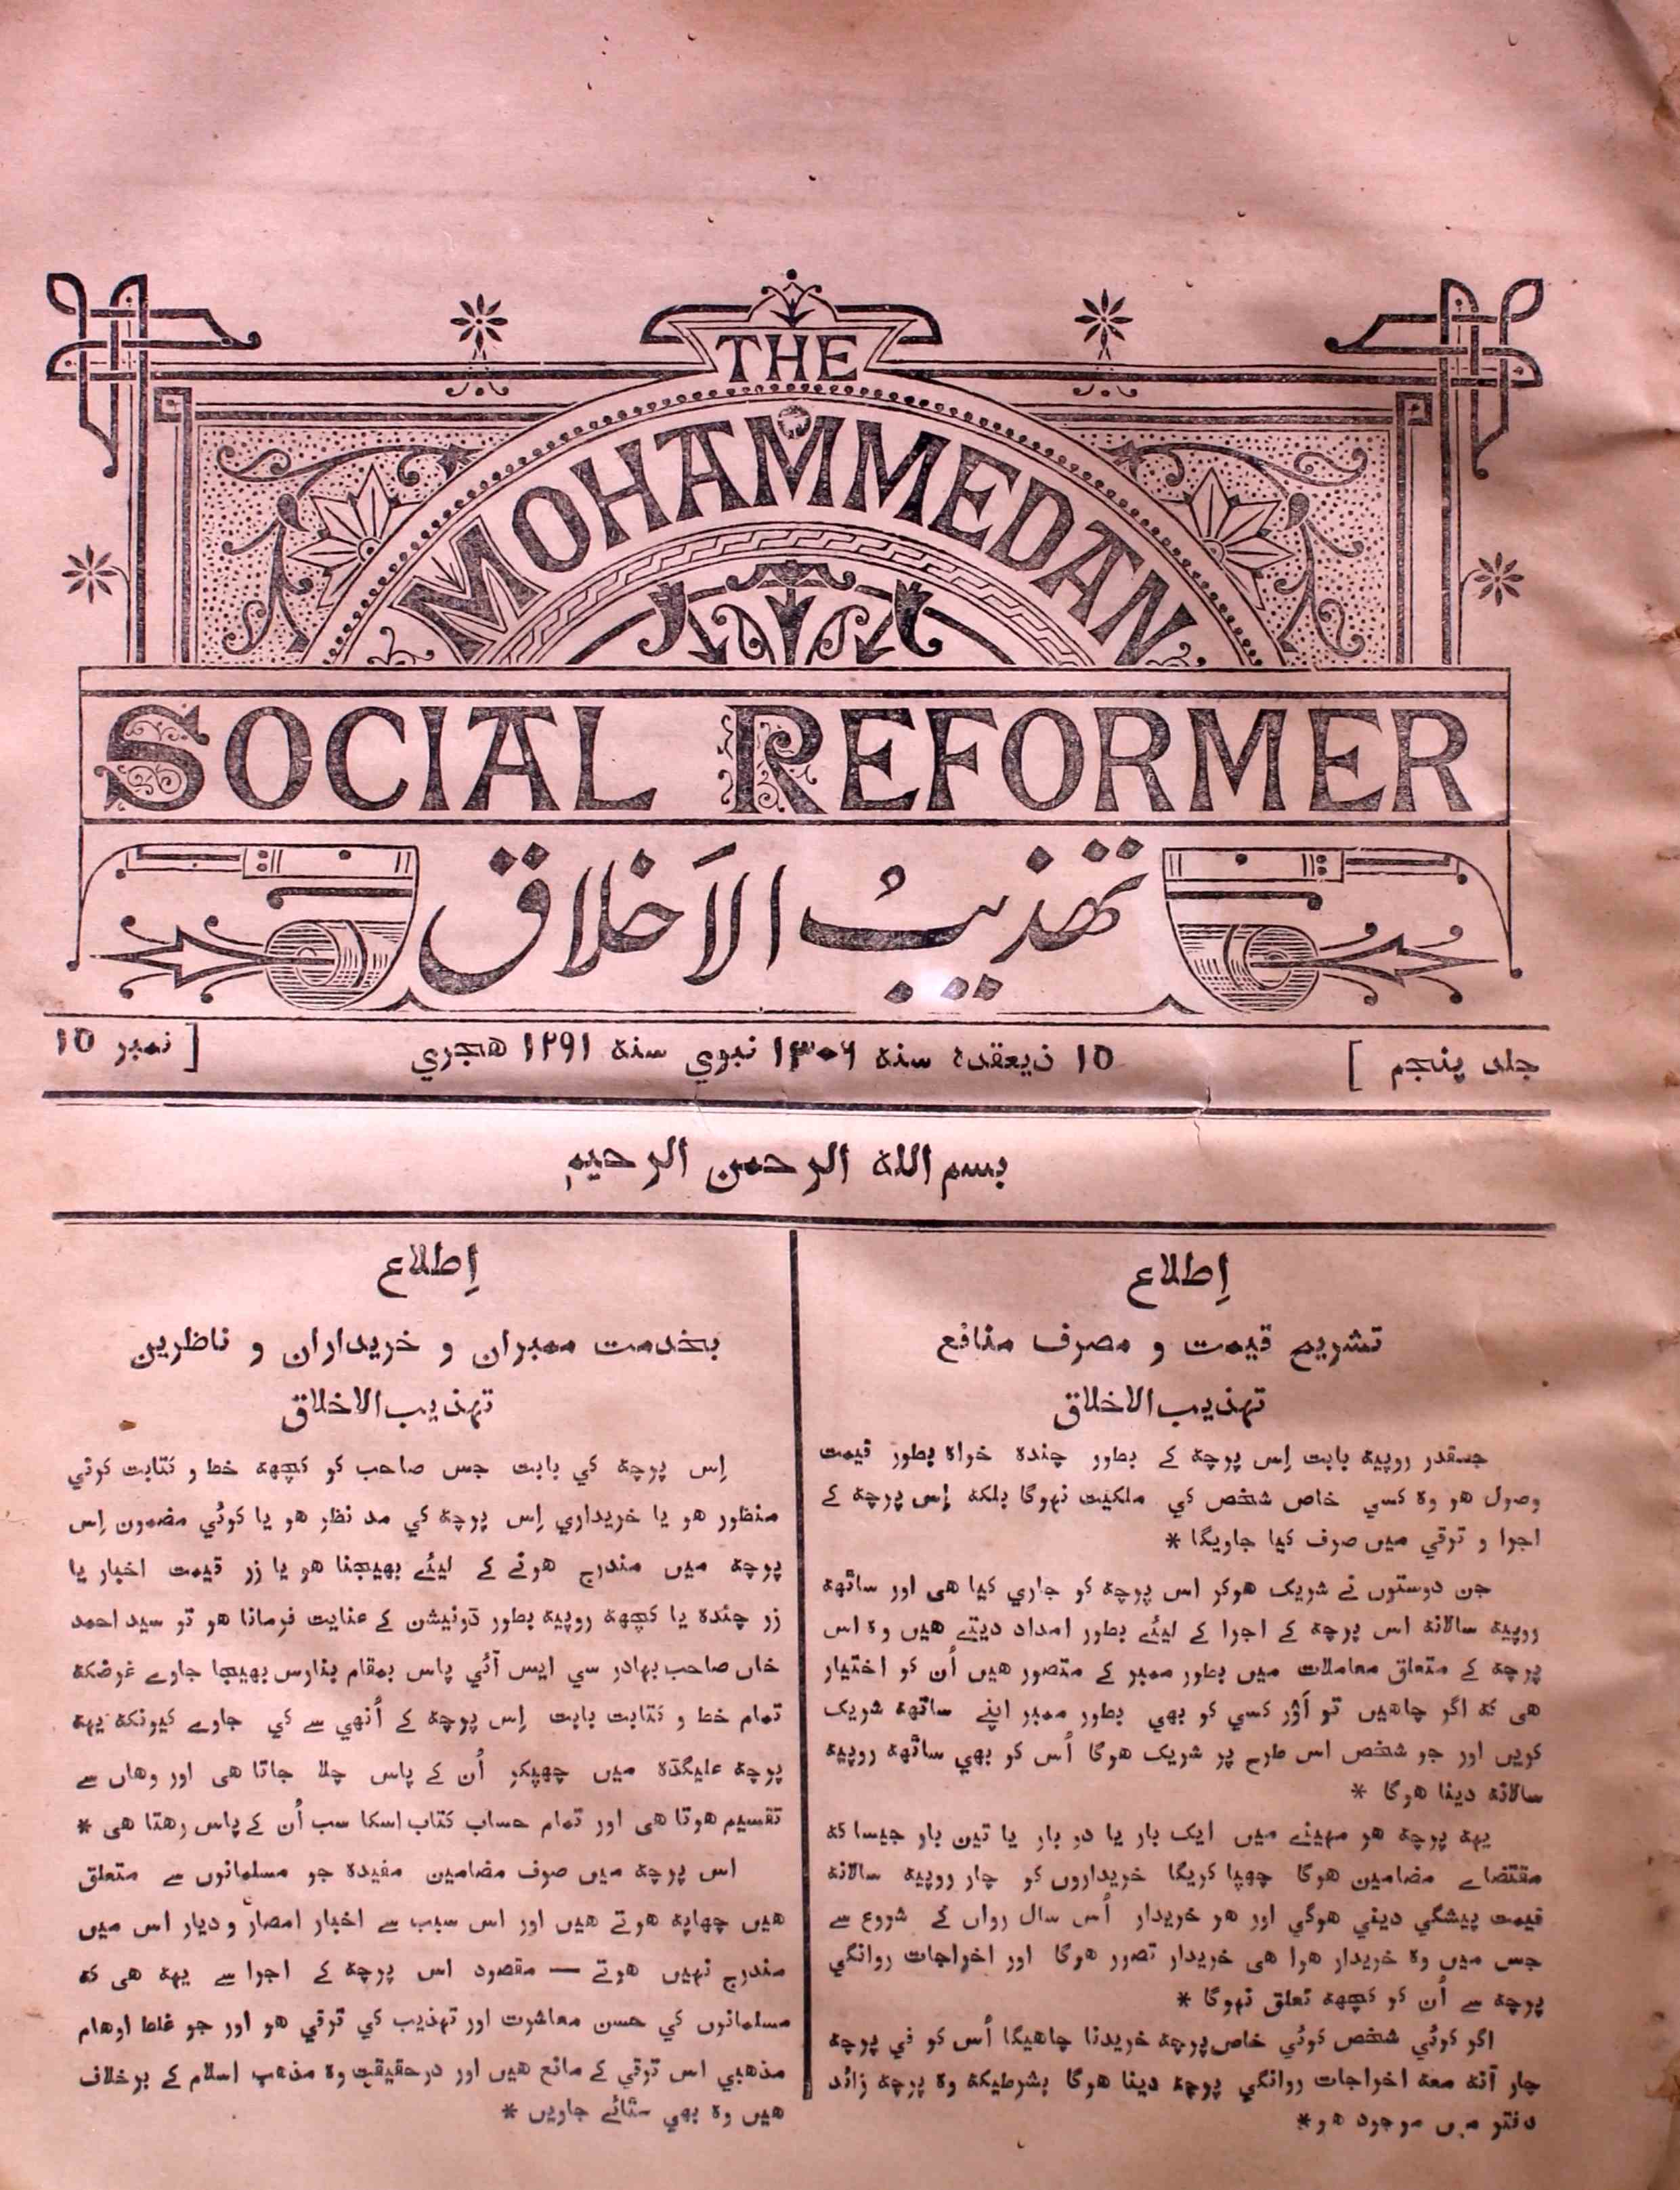 THE
MOHAMMEDAN
SOCIAL REFORMER
تهذیبُ الاَخلاق
جلد پنجم ]
۱۵ ذیعقدہ سنہ ۱۳۰۶ نبوي سنہ ۱۲۹۱ هجري
[ نمبر ۱۵
بسم اللہ الرحمن الرحیم
اِطلاع
تشریح قیمت و مصرف منافع
تهذیب الاخلاق
جسقدر روپیہ بابت اِس پرچہ کے بطور چندہ خواہ بطور قیمت
وصول هو وہ کسي خاص شخص کي ملکیت نہوگا بلکہ اِس پرچہ کے
اجرا و ترقي میں صرف کیا جاویگا *
جن دوستوں نے شریک هوکر اس پرچہ کو جاري کیا هی اور ساٹھہ
روپیہ سالانہ اس پرچہ کے اجرا کے لیئے بطور امداد دیتے هیں وہ اس
پرچہ کے متعلق معاملات میں بطور ممبر کے متصور هیں اُن کو اختیار
هی کہ اگر چاهیں تو اَوْر کسي کو بهي بطور ممبر اپنے ساتھہ شریک
کریں اور جو شخص اس طرح پر شریک هوگا اُس کو بهي ساٹھہ روپیہ
سالانہ دینا هوگا *
یہہ پرچہ هر مہینے میں ایک بار یا دو بار یا تین بار جیسا کہ
مقتضاے مضامین هوگا چهپا کریگا خریداروں کو چار روپیہ سالانہ
قیمت پیشگي دیني هوگي اور هر خریدار اُس سال رواں کے شروع سے
جس میں وہ خریدار هوا هی خریدار تصور هوگا اور اخراجات روانگي
پرچہ سے اُن کو کچھہ تعلق نہوگا *
اگر کوئي شخص کوئي خاص پرچہ خریدنا چاهیگا اُس کو في پرچہ
چار آنہ معہ اخراجات روانگي پرچہ دینا هوگا بشرطیکہ وہ پرچہ زائد
دفتر میں موجود هو *
اِطلاع
بخدمت ممبران و خریداران و ناظرین
تهذیب الاخلاق
اِس پرچہ کي بابت جس صاحب کو کچھہ خط و کتابت کرني
منظور هو یا خریداري اِس پرچہ کي مد نظر هو یا کوئي مضمون اِس
پرچہ میں مندرج هونے کے لیئے بهیجنا هو یا زر قیمت اخبار یا
زر چندہ یا کچھہ روپیہ بطور ڈونیشن کے عنایت فرمانا هو تو سید احمد
خاں صاحب بہادر سي ایس آئي پاس بمقام بنارس بهیجا جاوے غرضکہ
تمام خط و کتابت بابت اِس پرچہ کے اُنهي سے کي جاوے کیونکہ یہہ
پرچہ علیگڈہ میں چهپکر اُن کے پاس چلا جاتا هی اور وهاں سے
تقسیم هوتا هی اور تمام حساب کتاب اسکا سب اُن کے پاس رهتا هی *
اس پرچہ میں صرف مضامین مفیدہ جو مسلمانوں سے متعلق
هیں چهاپہ هوتے هیں اور اس سبب سے اخبار امصار و دیار اس میں
مندرج نہیں هوتے — مقصود اس پرچہ کے اجرا سے یہہ هی کہ
مسلمانوں کي حسن معاشرت اور تهذیب کي ترقي هو اور جو غلط اوهام
مذهبي اس ترقي کے مانع هیں اور درحقیقت وہ مذهب اسلام کے برخلاف
هیں وہ بهي مٹائے جاویں *